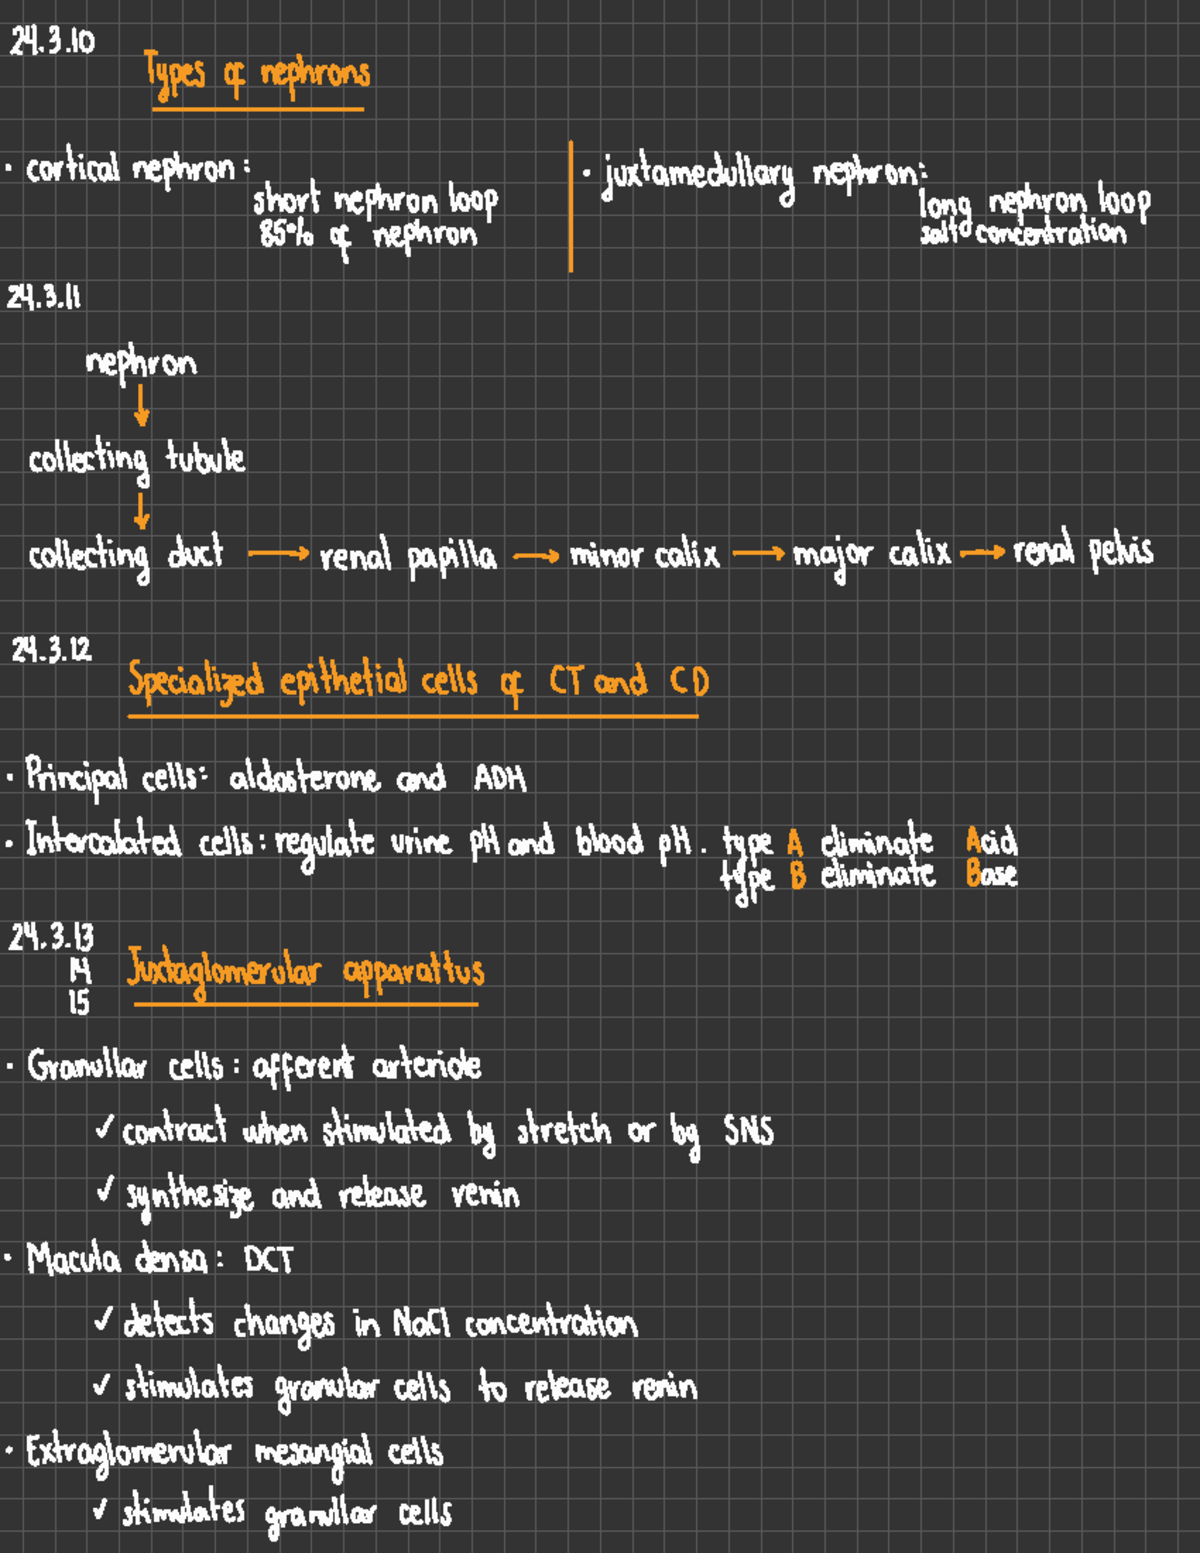 24.3.10
Types of nephrons
· cortical nephron:
short nephron loop
85% of nephron
· juxtamedullary nephron:
long nephron loop
salt concentration
24.3.11
nephron
collecting tubule
collecting duct → renal papilla → minor calix → major calix → renal pelvis
24.3.12
Specialized epithelial cells of CT and CD
· Principal cells: aldosterone and ADH
· Intercalated cells: regulate urine pH and blood pH. type A eliminate Acid
type B eliminate Base
24.3.13
14
15
Juxtaglomerular apparattus
· Granullar cells: afferent arteriole
✓ contract when stimulated by stretch or by SNS
✓ synthesize and release renin
· Macula densa: DCT
✓ detects changes in NaCl concentration
✓ stimulates granular cells to release renin
· Extraglomerular mesangial cells
✓ stimulates granullar cells